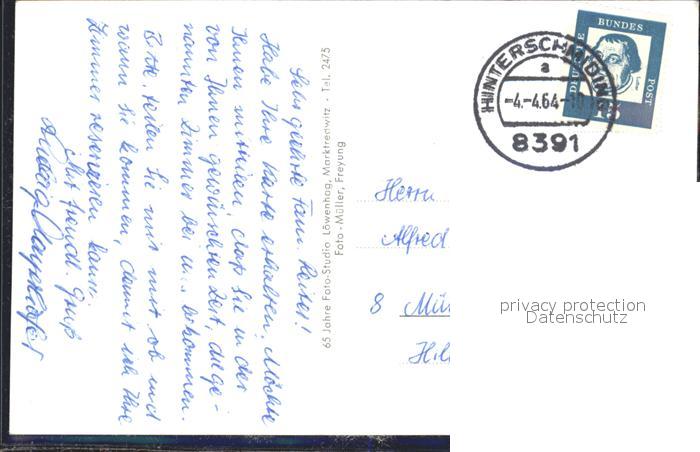 Sehr geehrte Fam. Reiter!
Habe Ihre Karte erhalten. Möchte
Ihnen mitteilen, daß Sie in der
von Ihnen gewünschten Zeit, die ge-
nannten Zimmer bei uns bekommen.
Bitte, teilen Sie mir mit ob und
wann Sie kommen, damit ich Ihre
Zimmer reservieren kann.
Mit freundl. Gruß
65 Jahre Foto-Studio Löwenhag, Marktredwitz - Tel. 2475
Foto-Müller, Freyung
DEUTSCHE BUNDES POST
15
HINTERSCHMIDING
a
-4.-4.64-10
8391
Herrn
Alfred
8 Mün
Hil
privacy protection
Datenschutz